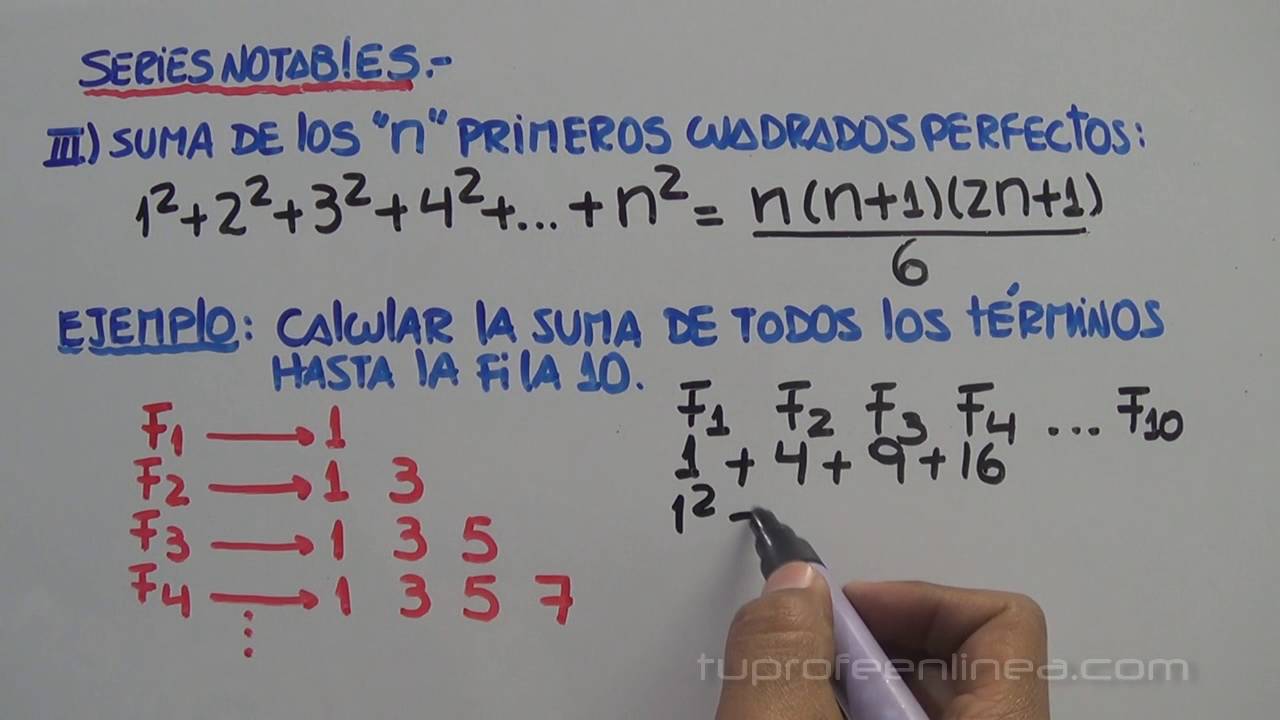 SERIES NOTABLES.-
III.) SUMA DE LOS "n" PRIMEROS CUADRADOS PERFECTOS:
1²+2²+3²+4²+...+n² = n(n+1)(2n+1)
6
EJEMPLO: CALCULAR LA SUMA DE TODOS LOS TÉRMINOS
HASTA LA FILA 10.
F₁ → 1
F₂ → 1 3
F₃ → 1 3 5
F₄ → 1 3 5 7
⋮
F₁ F₂ F₃ F₄ ... F₁₀
1 + 4 + 9 + 16
1² -
tuprofeenlinea.com